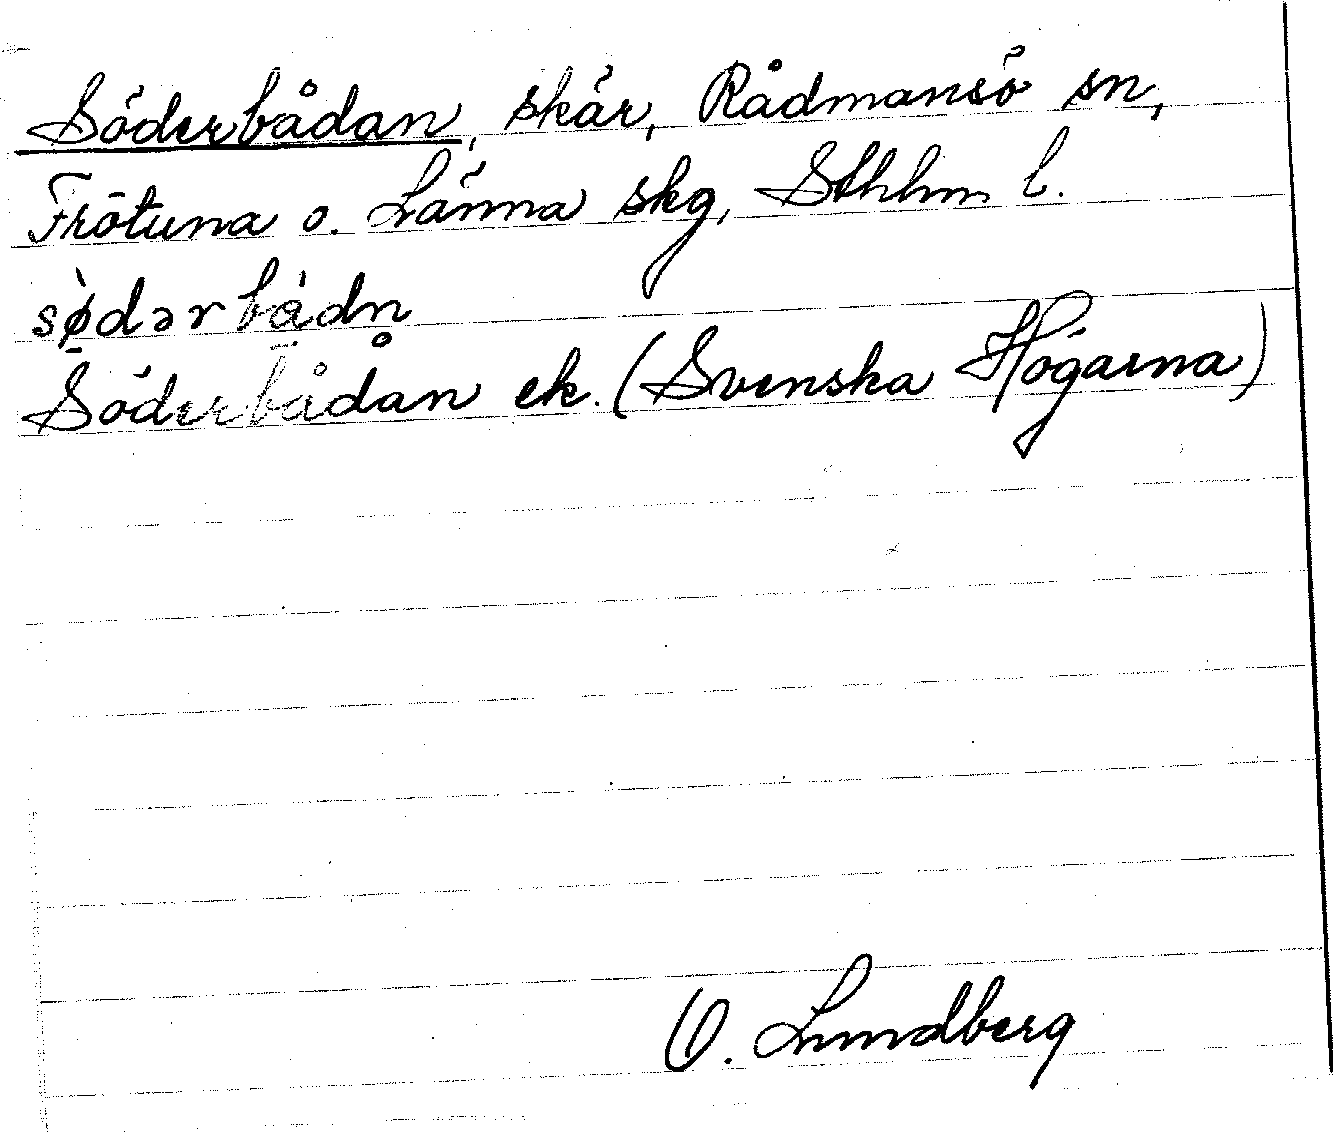 Söderbådan, skär, Rådmansö sn,
Frötuna o. Länna skg, Sthlm l.
sø̀dərbådn̥
Söderbådan ek. (Svenska Högarna)
O. Lundberg